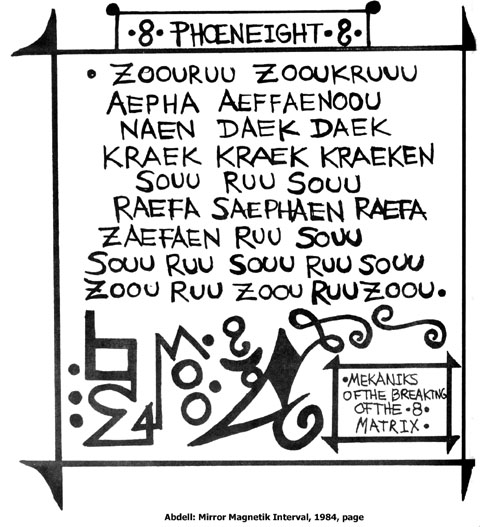 •8• PHOENEIGHT •8•
• ZOOURUU ZOOUKRUUU
AEPHA AEFFAENOOU
NAEN DAEK DAEK
KRAEK KRAEK KRAEKEN
SOUU RUU SOUU
RAEFA SAEPHAEN RAEFA
ZAEFAEN RUU SOUU
SOUU RUU SOUU RUU SOUU
ZOOU RUU ZOOU RUU ZOOU.
•MEKANIKS
OF THE BREAKING
OF THE •8•
MATRIX•
Abdell: Mirror Magnetik Interval, 1984, page